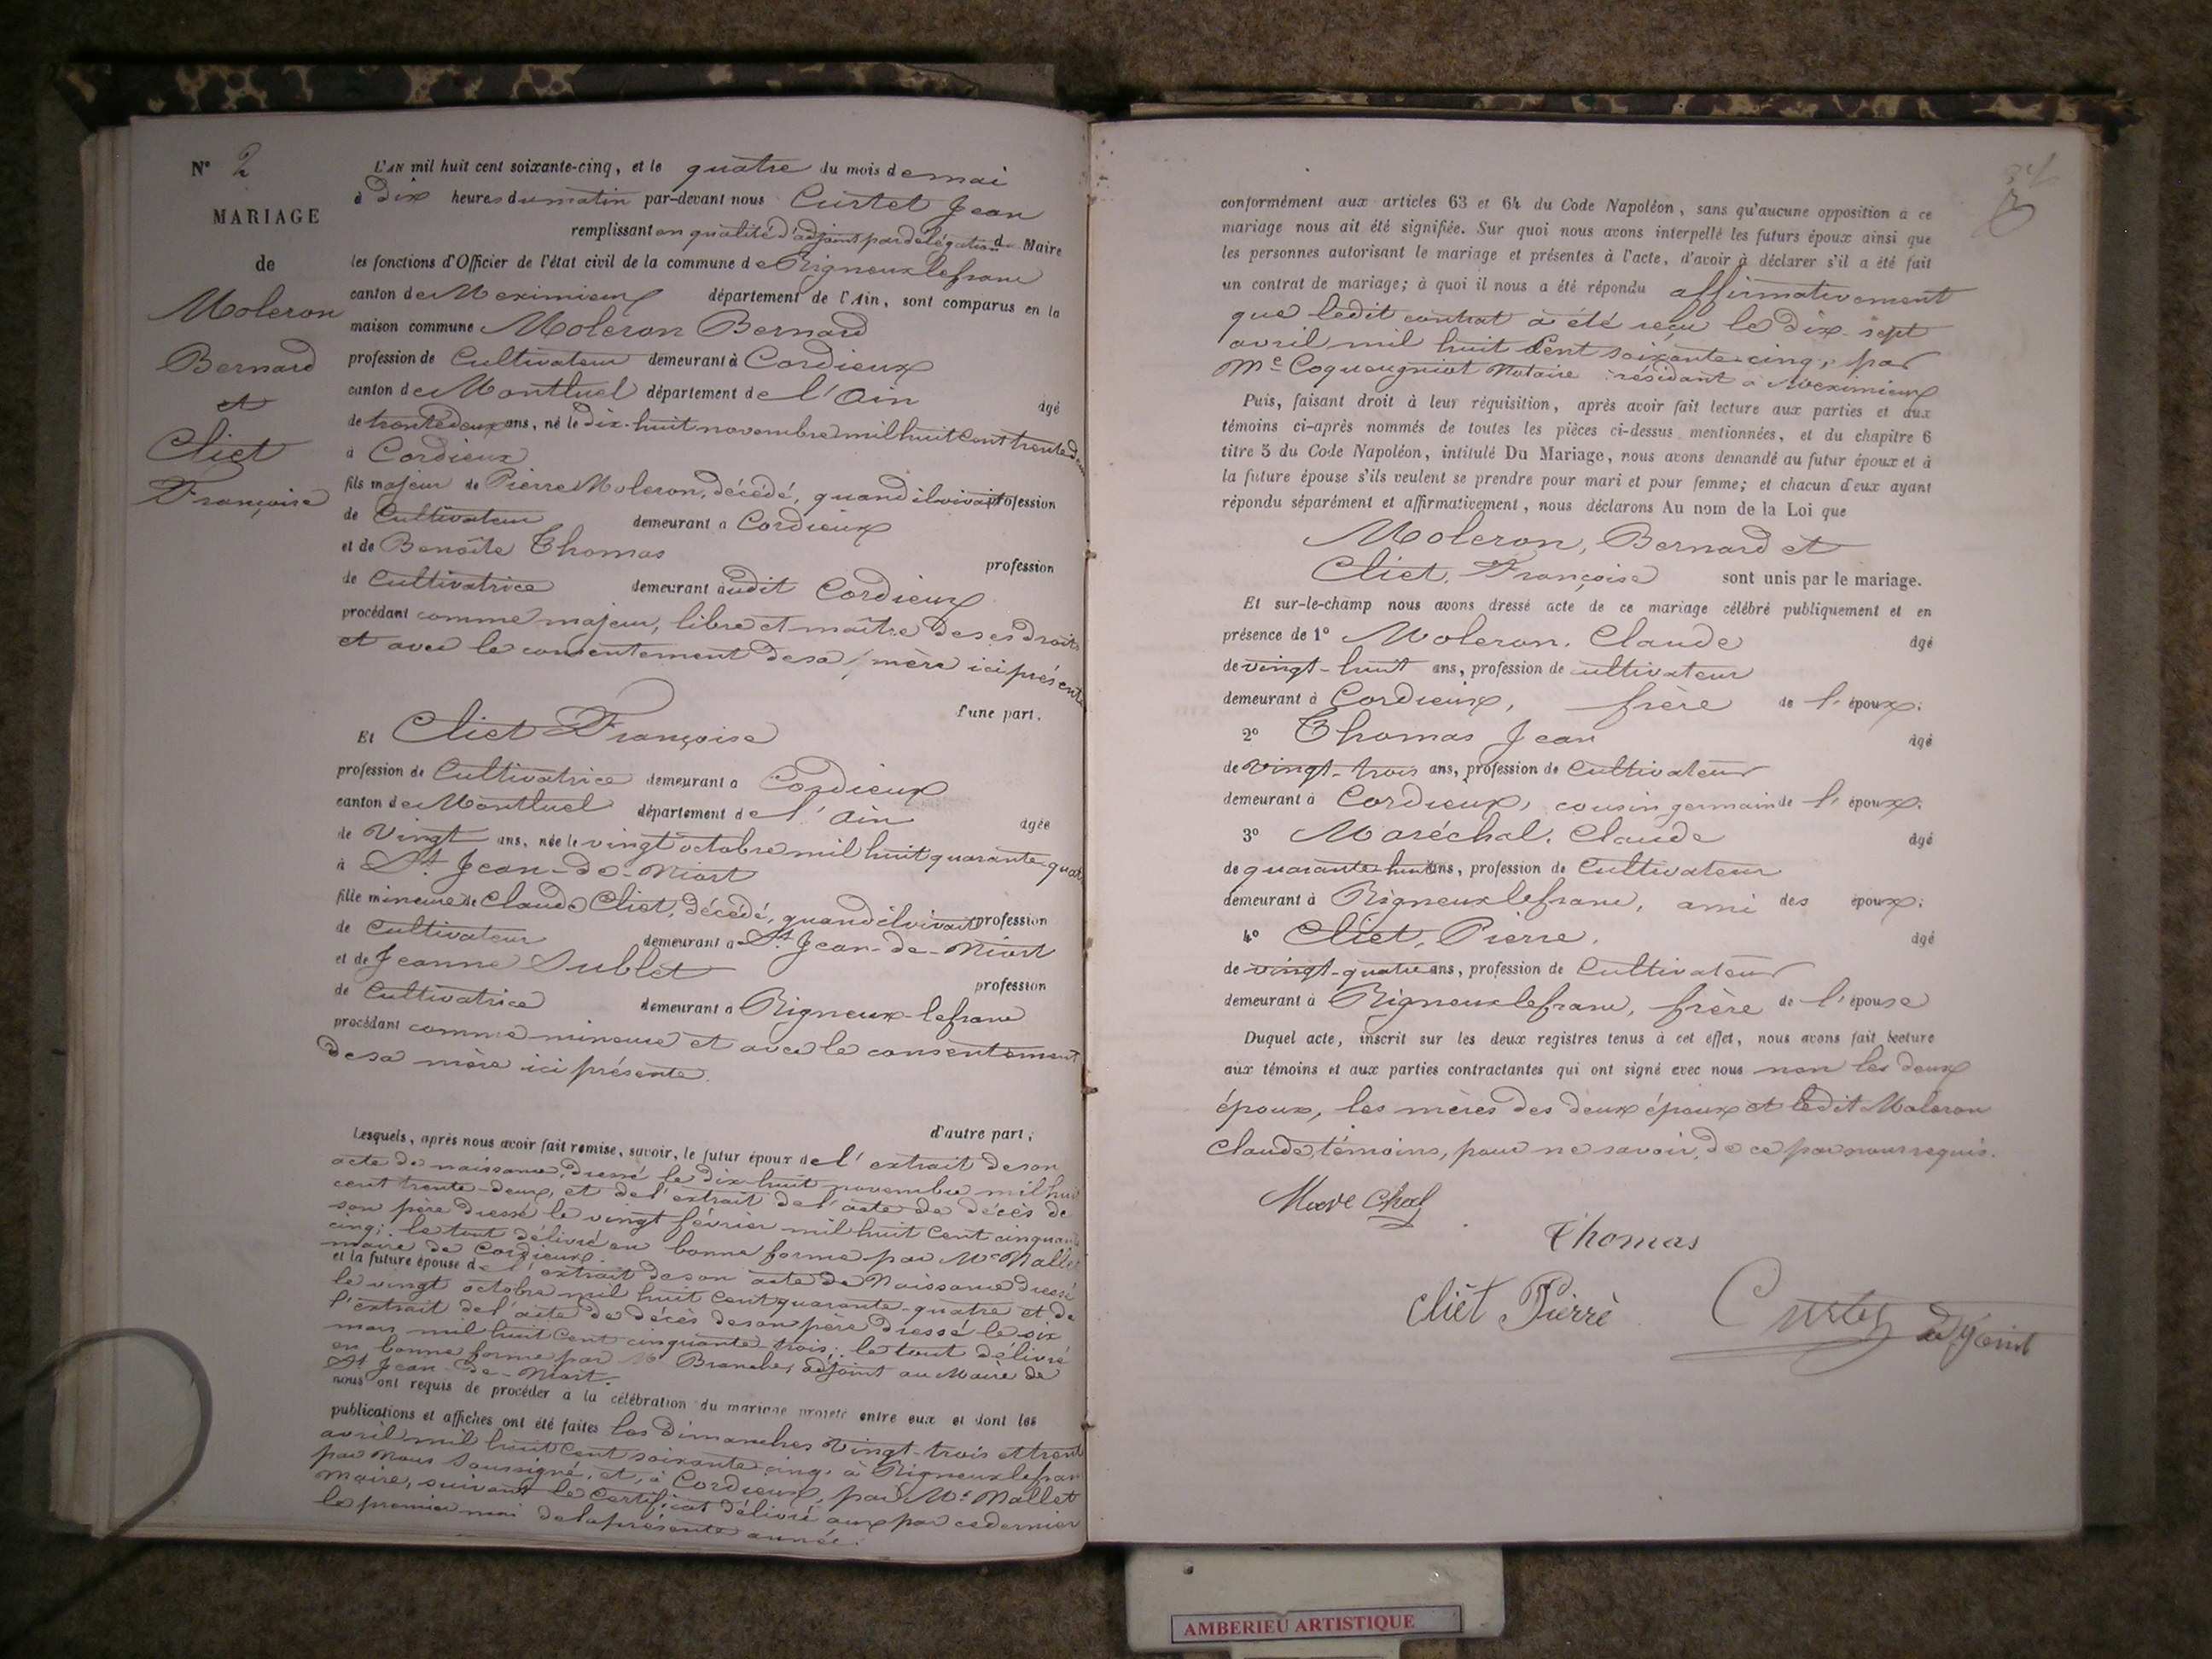 N° 2
MARIAGE
de
Moleron
Bernard
et
Cliet
Françoise
L'AN mil huit cent soixante-cinq, et le quatre du mois de mai
à dix heures du matin par-devant nous Curtet Jean
remplissant en qualité d'adjoint par délégation du Maire
les fonctions d'Officier de l'état civil de la commune de Rigneux lefranc
canton de Meximieux département de l'Ain, sont comparus en la
maison commune Moleron Bernard
profession de Cultivateur demeurant à Cordieux
canton de Montluel département de l'Ain âgé
de trente deux ans, né le dix-huit novembre mil huit Cent trente deux
à Cordieux
fils majeur de Pierre Moleron, décédé, quand il vivait profession
de Cultivateur demeurant à Cordieux
et de Benoîte Thomas profession
de Cultivatrice demeurant audit Cordieux
procédant comme majeur, libre et maître de ses droits
et avec le consentement de sa mère ici présente
d'une part.
Et Cliet Françoise
profession de Cultivatrice demeurant à Cordieux
canton de Montluel département de l'Ain âgée
de Vingt ans, née le vingt octobre mil huit quarante-quatre
à St Jean-de-Niort
fille mineure de Claude Cliet, décédé, quand il vivait profession
de Cultivateur demeurant à St Jean-de-Niort
et de Jeanne Sublet profession
de Cultivatrice demeurant à Rigneux-lefranc
procédant comme mineure et avec le consentement
de sa mère ici présente.
d'autre part;
Lesquels, après nous avoir fait remise, savoir, le futur époux de l'extrait de son
acte de naissance, dressé le dix-huit novembre mil huit
cent trente-deux, et de l'extrait de l'acte de décès de
son père dressé le vingt février mil huit Cent cinquante
cinq; le tout délivré en bonne forme par Mr Mallet
maire de Cordieux.
et la future épouse de l'extrait de son acte de Naissance dressé
le vingt octobre mil huit Cent quarante-quatre et de
l'extrait de l'acte de décès de son père dressé le six
mars mil huit Cent cinquante-trois; le tout délivré
en bonne forme par Mr Branche, adjoint au Maire de
St Jean-de-Niort.
nous ont requis de procéder à la célébration du mariage projeté entre eux et dont les
publications et affiches ont été faites les Dimanches Vingt-trois et trente
avril mil huit Cent soixante cinq, à Rigneux lefranc
par Nous Soussigné, et, à Cordieux, par Mr Mallet
Maire, suivant le Certificat délivré aux par ce dernier
le premier mai de la présente année.
34
conformément aux articles 63 et 64 du Code Napoléon, sans qu'aucune opposition à ce
mariage nous ait été signifiée. Sur quoi nous avons interpellé les futurs époux ainsi que
les personnes autorisant le mariage et présentes à l'acte, d'avoir à déclarer s'il a été fait
un contrat de mariage; à quoi il nous a été répondu affirmativement
que ledit contrat a été reçu le dix-sept
avril mil huit Cent soixante-cinq, par
Me Coqueugniot Notaire résidant à Meximieux
Puis, faisant droit à leur réquisition, après avoir fait lecture aux parties et aux
témoins ci-après nommés de toutes les pièces ci-dessus mentionnées, et du chapitre 6
titre 5 du Code Napoléon, intitulé Du Mariage, nous avons demandé au futur époux et à
la future épouse s'ils veulent se prendre pour mari et pour femme; et chacun d'eux ayant
répondu séparément et affirmativement, nous déclarons Au nom de la Loi que
Moleron, Bernard et
Cliet, Françoise sont unis par le mariage.
Et sur-le-champ nous avons dressé acte de ce mariage célébré publiquement et en
présence de 1° Moleron, Claude âgé
de vingt-huit ans, profession de cultivateur
demeurant à Cordieux, frère de l'époux.
2° Thomas Jean âgé
de vingt-trois ans, profession de Cultivateur
demeurant à Cordieux, cousin germain de l'époux.
3° Maréchal, Claude âgé
de quarante-huit ans, profession de Cultivateur
demeurant à Rigneux lefranc, ami des époux.
4° Cliet, Pierre. âgé
de vingt-quatre ans, profession de Cultivateur
demeurant à Rigneux lefranc, frère de l'épouse
Duquel acte, inscrit sur les deux registres tenus à cet effet, nous avons fait lecture
aux témoins et aux parties contractantes qui ont signé avec nous non les deux
époux, les mères des deux époux et ledit Moleron
Claude, témoins, pour ne savoir, de ce par nous requis.
Marechal
Thomas
Cliet Pierrè
Curtet adjoint
AMBERIEU ARTISTIQUE